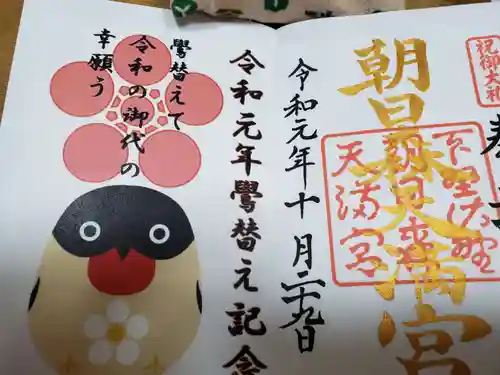 祝御大礼
奉
朝日森天満宮
下野佐野
朝日森
天満宮
令和元年十月二十九日
令和元年鷽替え記念
鷽替えて
令和の御代の
幸願う